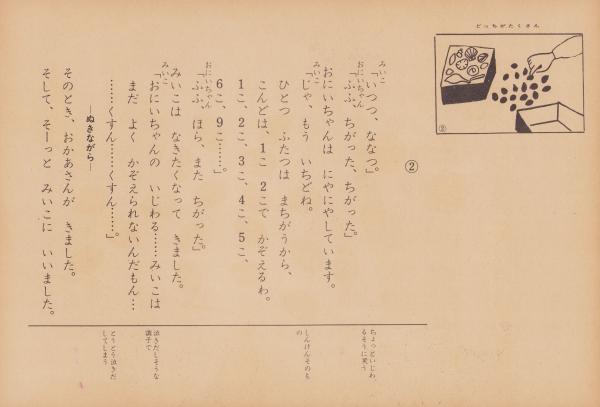 どっちがたくさん
②
②
みいこ
「いつつ、ななつ」。
おにいちゃん
「ふふ、ちがった、ちがった」。
おにいちゃんは にやにやしています。
みいこ
「じゃ、もう いちどね。
ひとつ ふたつは まちがうから、
こんどは、1こ 2こで かぞえるわ。
1こ、2こ、3こ、4こ、5こ、
6こ、9こ……」。
おにいちゃん
「ふふ、ほら、また ちがった」。
みいこは なきたくなって きました。
みいこ
「おにいちゃんの いじわる……みいこは
まだ よく かぞえられないんだもん…
……くすん……くすん……」。
―ぬきながら―
そのとき、おかあさんが きました。
そして、そーっと みいこに いいました。
ちょっといじわ
るそうに笑う
しんけんそのも
の
泣きだしそうな
調子で
とうとう泣きだ
してしまう